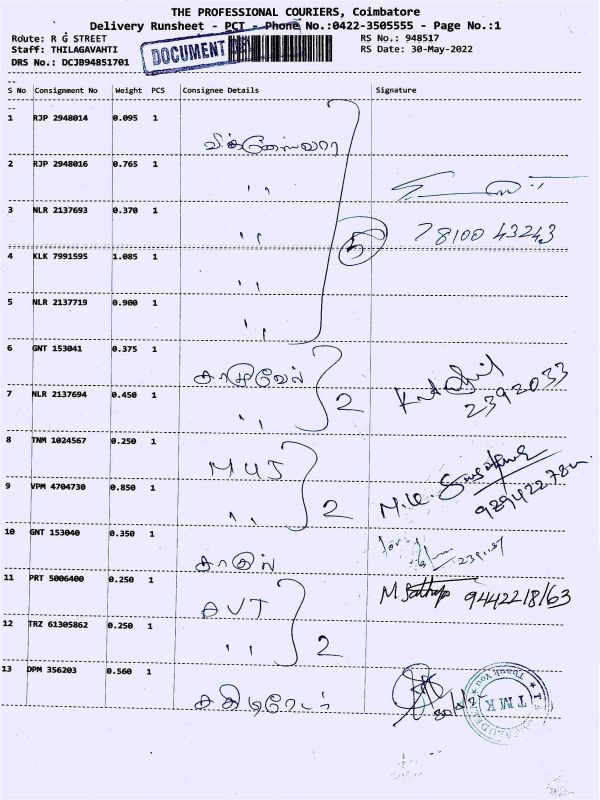 THE PROFESSIONAL COURIERS, Coimbatore
Delivery Runsheet - PCT - Phone No.:0422-3505555 - Page No.:1
Route: R G STREET RS No.: 948517
Staff: THILAGAVAHTI RS Date: 30-May-2022
DRS No.: DCJB94851701 DOCUMENT
S No Consignment No Weight PCS Consignee Details Signature
1 RJP 2948014 0.095 1
2 RJP 2948016 0.765 1 ,,
3 NLR 2137693 0.370 1 ,, 5 78100 43243
4 KLK 7991595 1.085 1 ,,
5 NLR 2137719 0.900 1 ,,
6 GNT 153041 0.375 1
7 NLR 2137694 0.450 1 ,, 2 2392033
8 TNM 1024567 0.250 1 MUJ
9 VPM 4704730 0.850 1 ,, 2 M.K.
10 GNT 153040 0.350 1 for
11 PRT 5006400 0.250 1 AVT 9442218163
12 TRZ 61305862 0.250 1 ,, 2
13 DPM 356203 0.560 1
Thank You
TMK